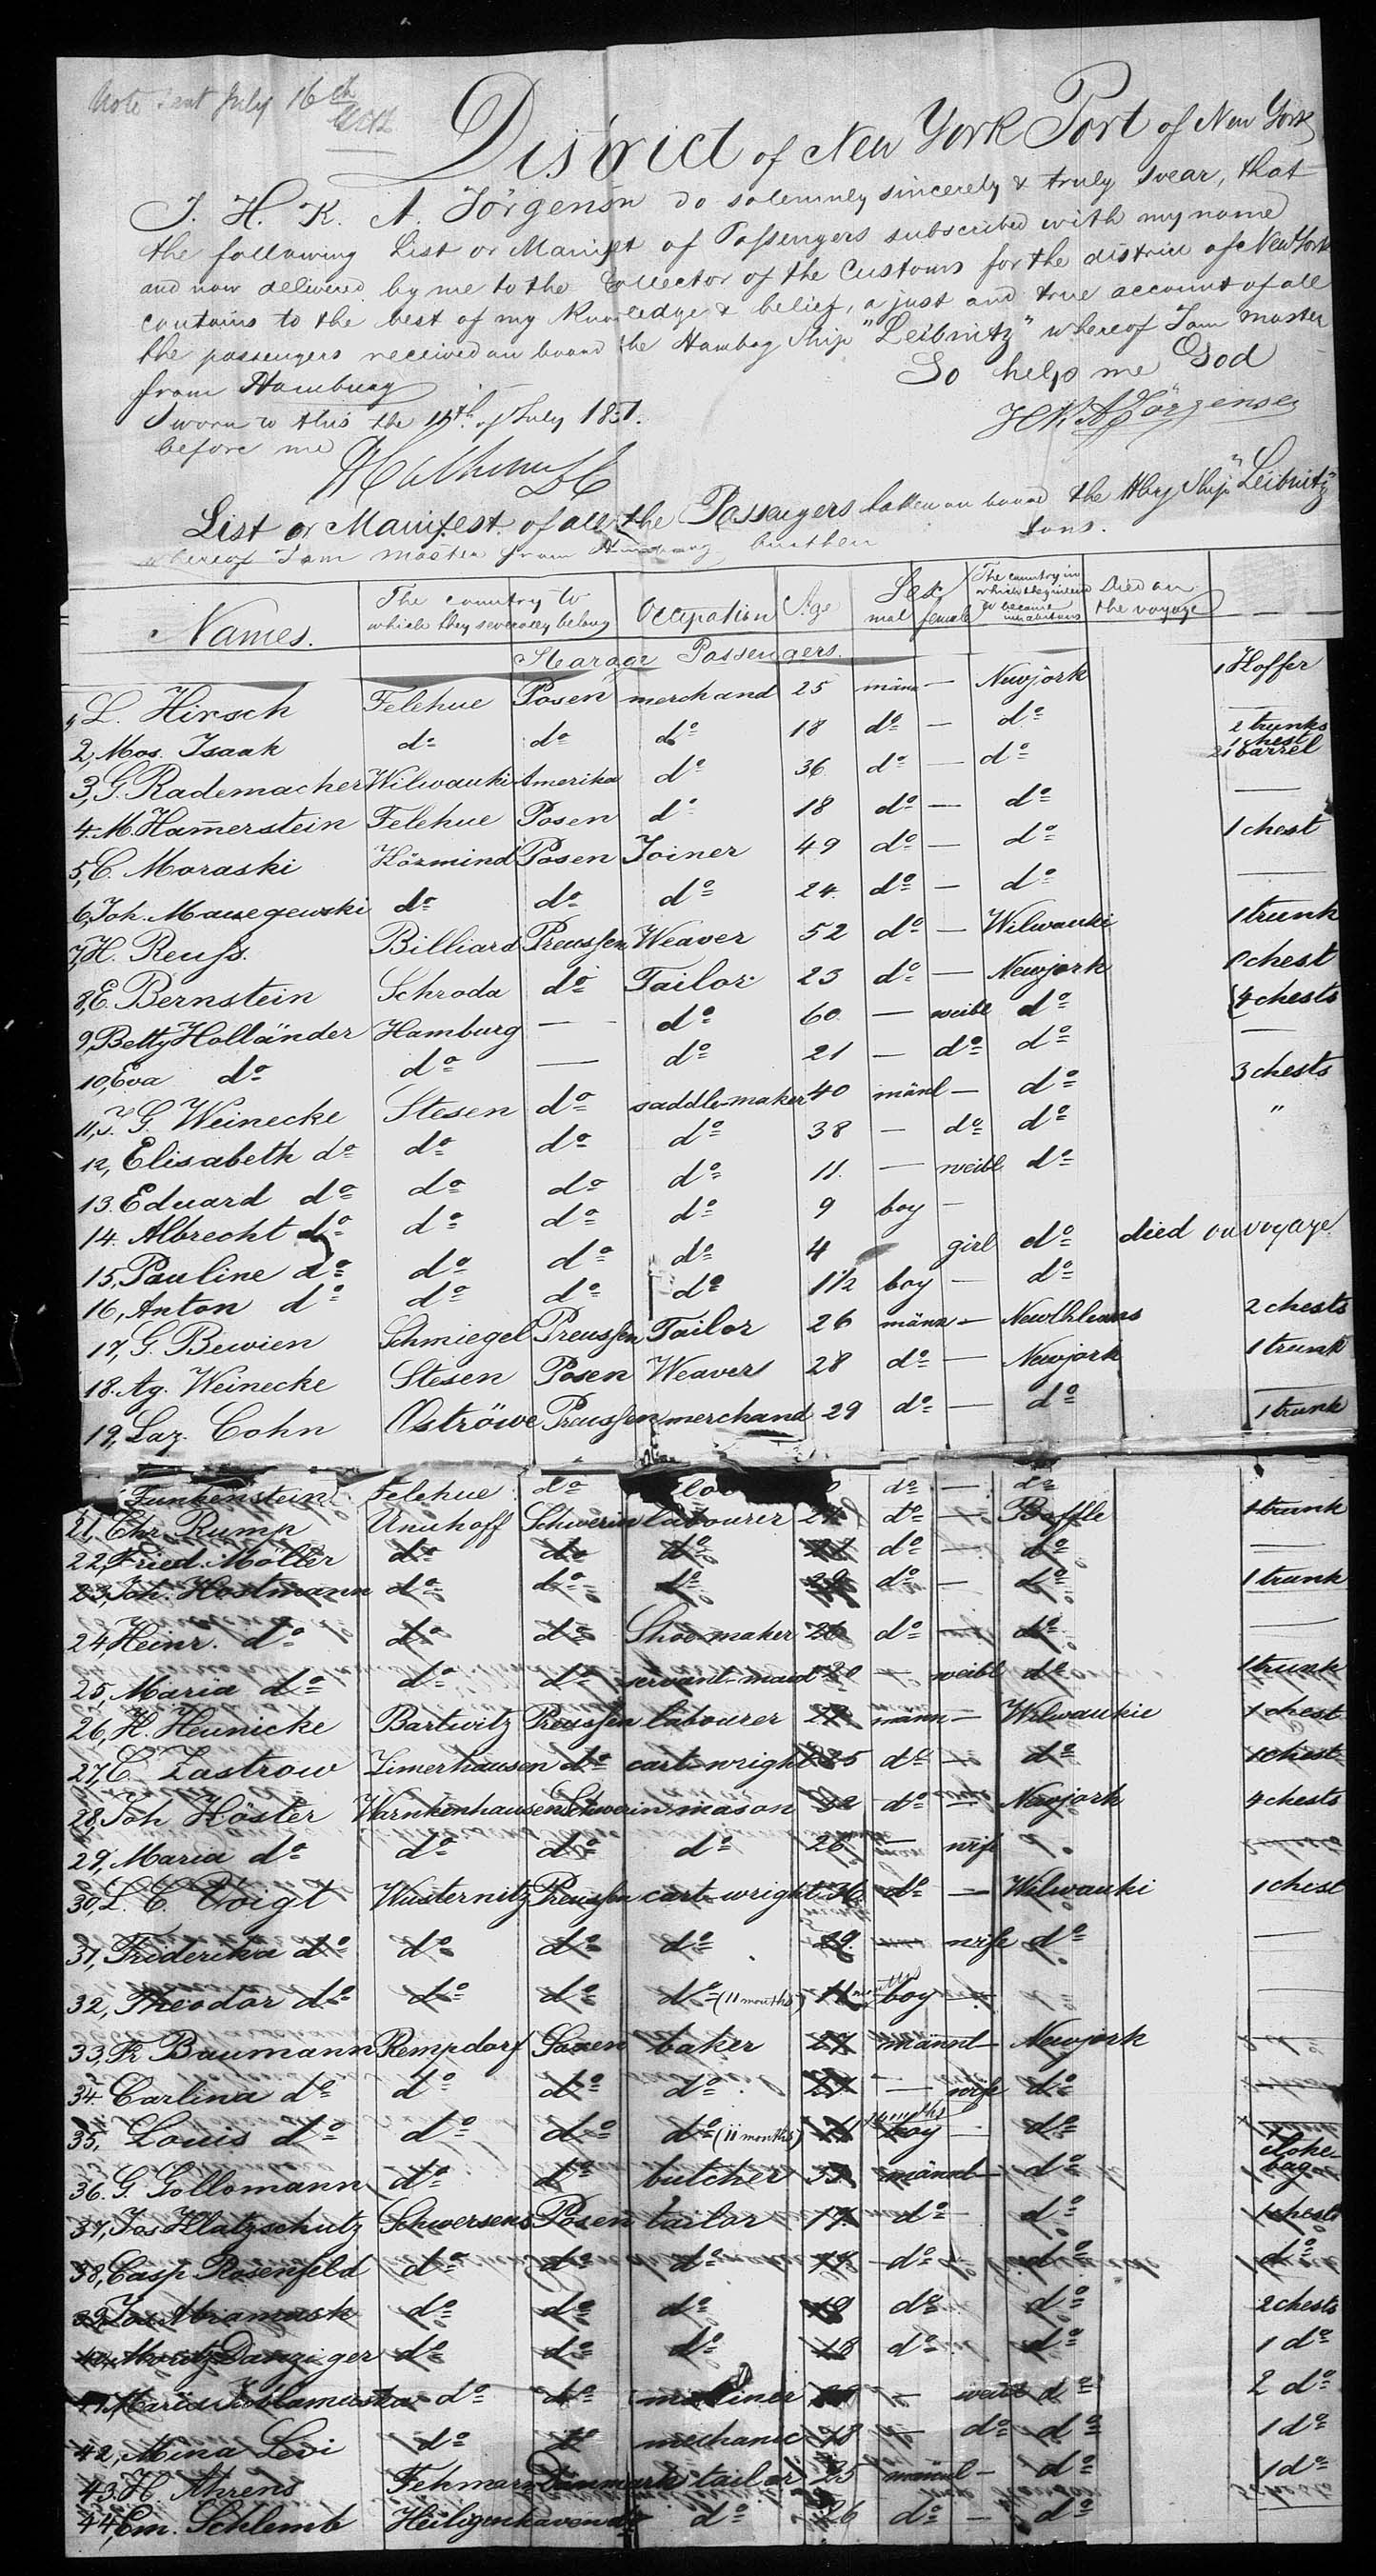 Note sent July 16th
District of New York Port of New York
I. H. K. A. Jörgensen do solemnly sincerely & truly swear, that
the following List or Manifest of Passengers subscribed with my name
and now delivered by me to the Collector of the Customs for the district of New York
contains to the best of my knowledge & belief, a just and true account of all
the passengers received on board the Hambog Ship "Leibnitz" whereof I am master
from Hamburg
So help me God
Sworn to this the 15th of July 1851.
H.K.A. Jörgensen
before me
List or Manifest of all the Passengers taken on board the Hbg Ship "Leibnitz"
whereof I am master from Hamburg burthen tons.
Names. The country to which they severally belong Occupation Age Sex mal female The country in which they intend to become inhabitans Died on the voyage
Stearage Passengers.
1, L. Hirsch Felehue Posen merchand 25 männ — Newjork 1 Koffer
2, Mos. Isaak do do do 18 do — do
3, G. Rademacher Wilwauki Amerika do 36 do — do 2 trunks 1 chest 21 barrel
4. M. Hamerstein Felehue Posen do 18 do — do —
5, C. Moraski Közmind Posen Joiner 49 do — do 1 chest
6, Joh. Mauegewski do do do 24 do — do —
7, H. Reuss. Billiard Preussen Weaver 52 do — Wilwauki 1 trunk
8, E. Bernstein Schroda do Tailor 23 do — Newjork 1 chest
9, Betty Holländer Hamburg — do 60 — weibl do 4 chests
10, Eva do do — do 21 — do do —
11, J. G. Weinecke Stesen do saddle-maker 40 mänl — do 3 chests
12, Elisabeth do do do do 38 — do do "
13. Eduard do do do do 11. — weibl do
14. Albrecht do do do do 9 boy —
15, Pauline do do do do 4 girl do died on voyage
16, Anton do do do do 1 1/2 boy — do
17, G. Bewien Schmiegel Preussen Tailor 26 männ — Newlhleans 2 chests
18. Ag. Weinecke Stesen Posen Weaver 28 do — Newjork 1 trunk
19, Laz. Cohn Oströwe Preussen merchand 29 do — do —
1 trunk
Funkenstein Felehue do do — do
21. Chr. Rump Unuhoff Schwerin labourer 24 do — Boffle 1 trunk
22, Fried. Möller do do do do — do —
23, Joh. Hostmann do do do do — do 1 trunk
24, Heinr. do do do Shoe-maker 26 do — do —
25, Maria do do do servant-maed 20 — weibl do 1 trunk
26, H. Heunicke Bartwitz Preussen labourer männ — Wilwaukie 1 chest
27, C. Zastrow Zimerhausen do cart-wright 25 do — do 1 chest
28, Joh Höster Warnkenhausen Schwerin mason 32 do — Newjork 4 chests
29, Maria do do do do 26 — wife do
30, L. C. Voigt Wusternitz Preussen cart-wright 36 do — Wilwauki 1 chest
31, Friderika do do do do 29. — wife do —
32, Theodor do do do do (11 months) 11 boy — do —
33, Fr Baumann Rempdorf Saxen baker 27 männl — Newjork
34. Carlina do do do do 27 — wife do
35, Louis do do do do (11 months) 11 boy — do
36. G. Gollomann do do butcher 33 männl — do 1 cloke-bag
37, Jos Klatzschutz Schwersens Posen tailor 17 do — do 1 chest
38, Casp Rosenfeld do do do 18 do do do
39, Jos Abramask do do do 18 do do 2 chests
40, Moritz Danziger do do do 18 do do 1 do
41, Maria do do milliner — weibl do 2 do
42, Mina Levi do do mechanic 18 — do do 1 do
43. H. Ahrens Fehmarn Dänmark tailor 25 männl — do 1 do
44, Em. Schlemb Heiligenhaven do do 26 do — do